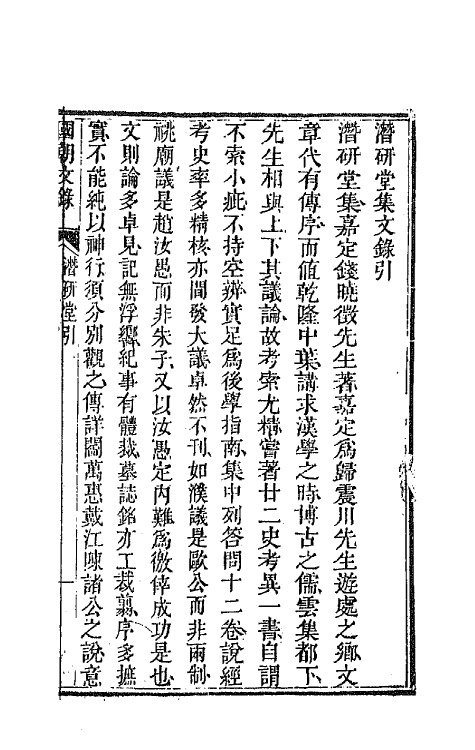 潛研堂集文錄引
潛研堂集嘉定錢曉徵先生著嘉定爲歸震川先生遊處之鄉文
章代有傳序而値乾隆中葉講求漢學之時博古之儒雲集都下
先生相與上下其議論故考索尤精嘗著廿二史考異一書自謂
不索小疵不持空辨實足爲後學指南集中列答問十二卷說經
考史率多精核亦間發大議卓然不刊如濮議是歐公而非兩制
祧廟議是趙汝愚而非朱子又以汝愚定內難爲徼倖成功是也
文則論多卓見記無浮響紀事有體裁墓誌銘亦工裁翦序多摭
實不能純以神行須分別觀之傳詳閻萬惠戴江陳諸公之說意
國朝文錄 潛研堂引 一